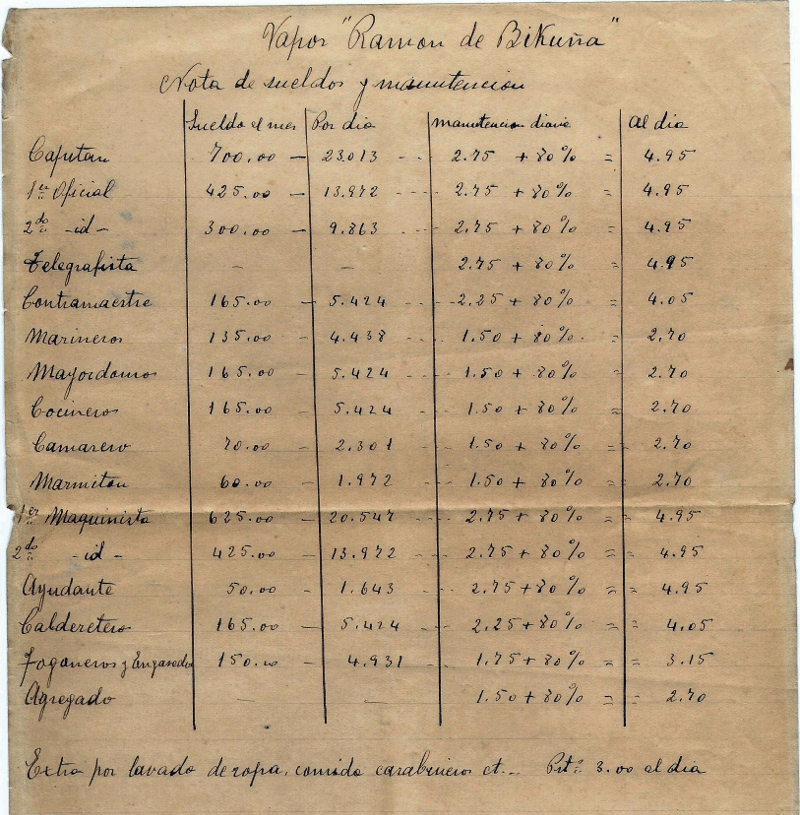 Vapor "Ramon de Bikuña"
Nota de sueldos y manutencion
Sueldo el mes Por dia manutencion diaria Al dia
Capitan 700.00 — 23.013 --- 2.75 + 80% = 4.95
1er Oficial 425.00 — 13.972 ---- 2.75 + 80% = 4.95
2do -id- 300.00 — 9.863 --- 2.75 + 80% = 4.95
Telegrafista — — 2.75 + 80% = 4.95
Contramaestre 165.00 — 5.424 --- 2.25 + 80% = 4.05
Marineros 135.00 — 4.438 --- 1.50 + 80% = 2.70
Mayordomos 165.00 — 5.424 --- 1.50 + 80% = 2.70
Cocineros 165.00 — 5.424 --- 1.50 + 80% = 2.70
Camarero 70.00 — 2.301 --- 1.50 + 80% = 2.70
Marmiton 60.00 — 1.972 --- 1.50 + 80% = 2.70
1er Maquinista 625.00 — 20.547 --- 2.75 + 80% = 4.95
2do -id- 425.00 — 13.972 --- 2.75 + 80% = 4.95
Ayudante 50.00 — 1.643 --- 2.75 + 80% = 4.95
Calderetero 165.00 — 5.424 --- 2.25 + 80% = 4.05
Foganeros y Engrasador 150.00 — 4.931 --- 1.75 + 80% = 3.15
Agregado — — 1.50 + 80% = 2.70
Extra por lavado de ropa, comida carabineros et... Pts 3.00 al dia